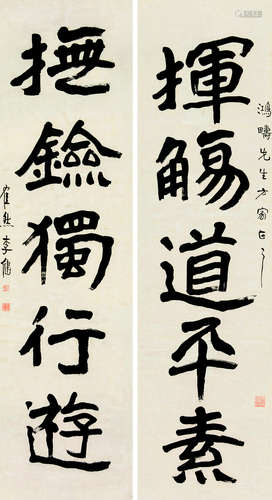 鴻疇先生方家正之
揮觴道平素
撫鐱獨行遊
隺然李健